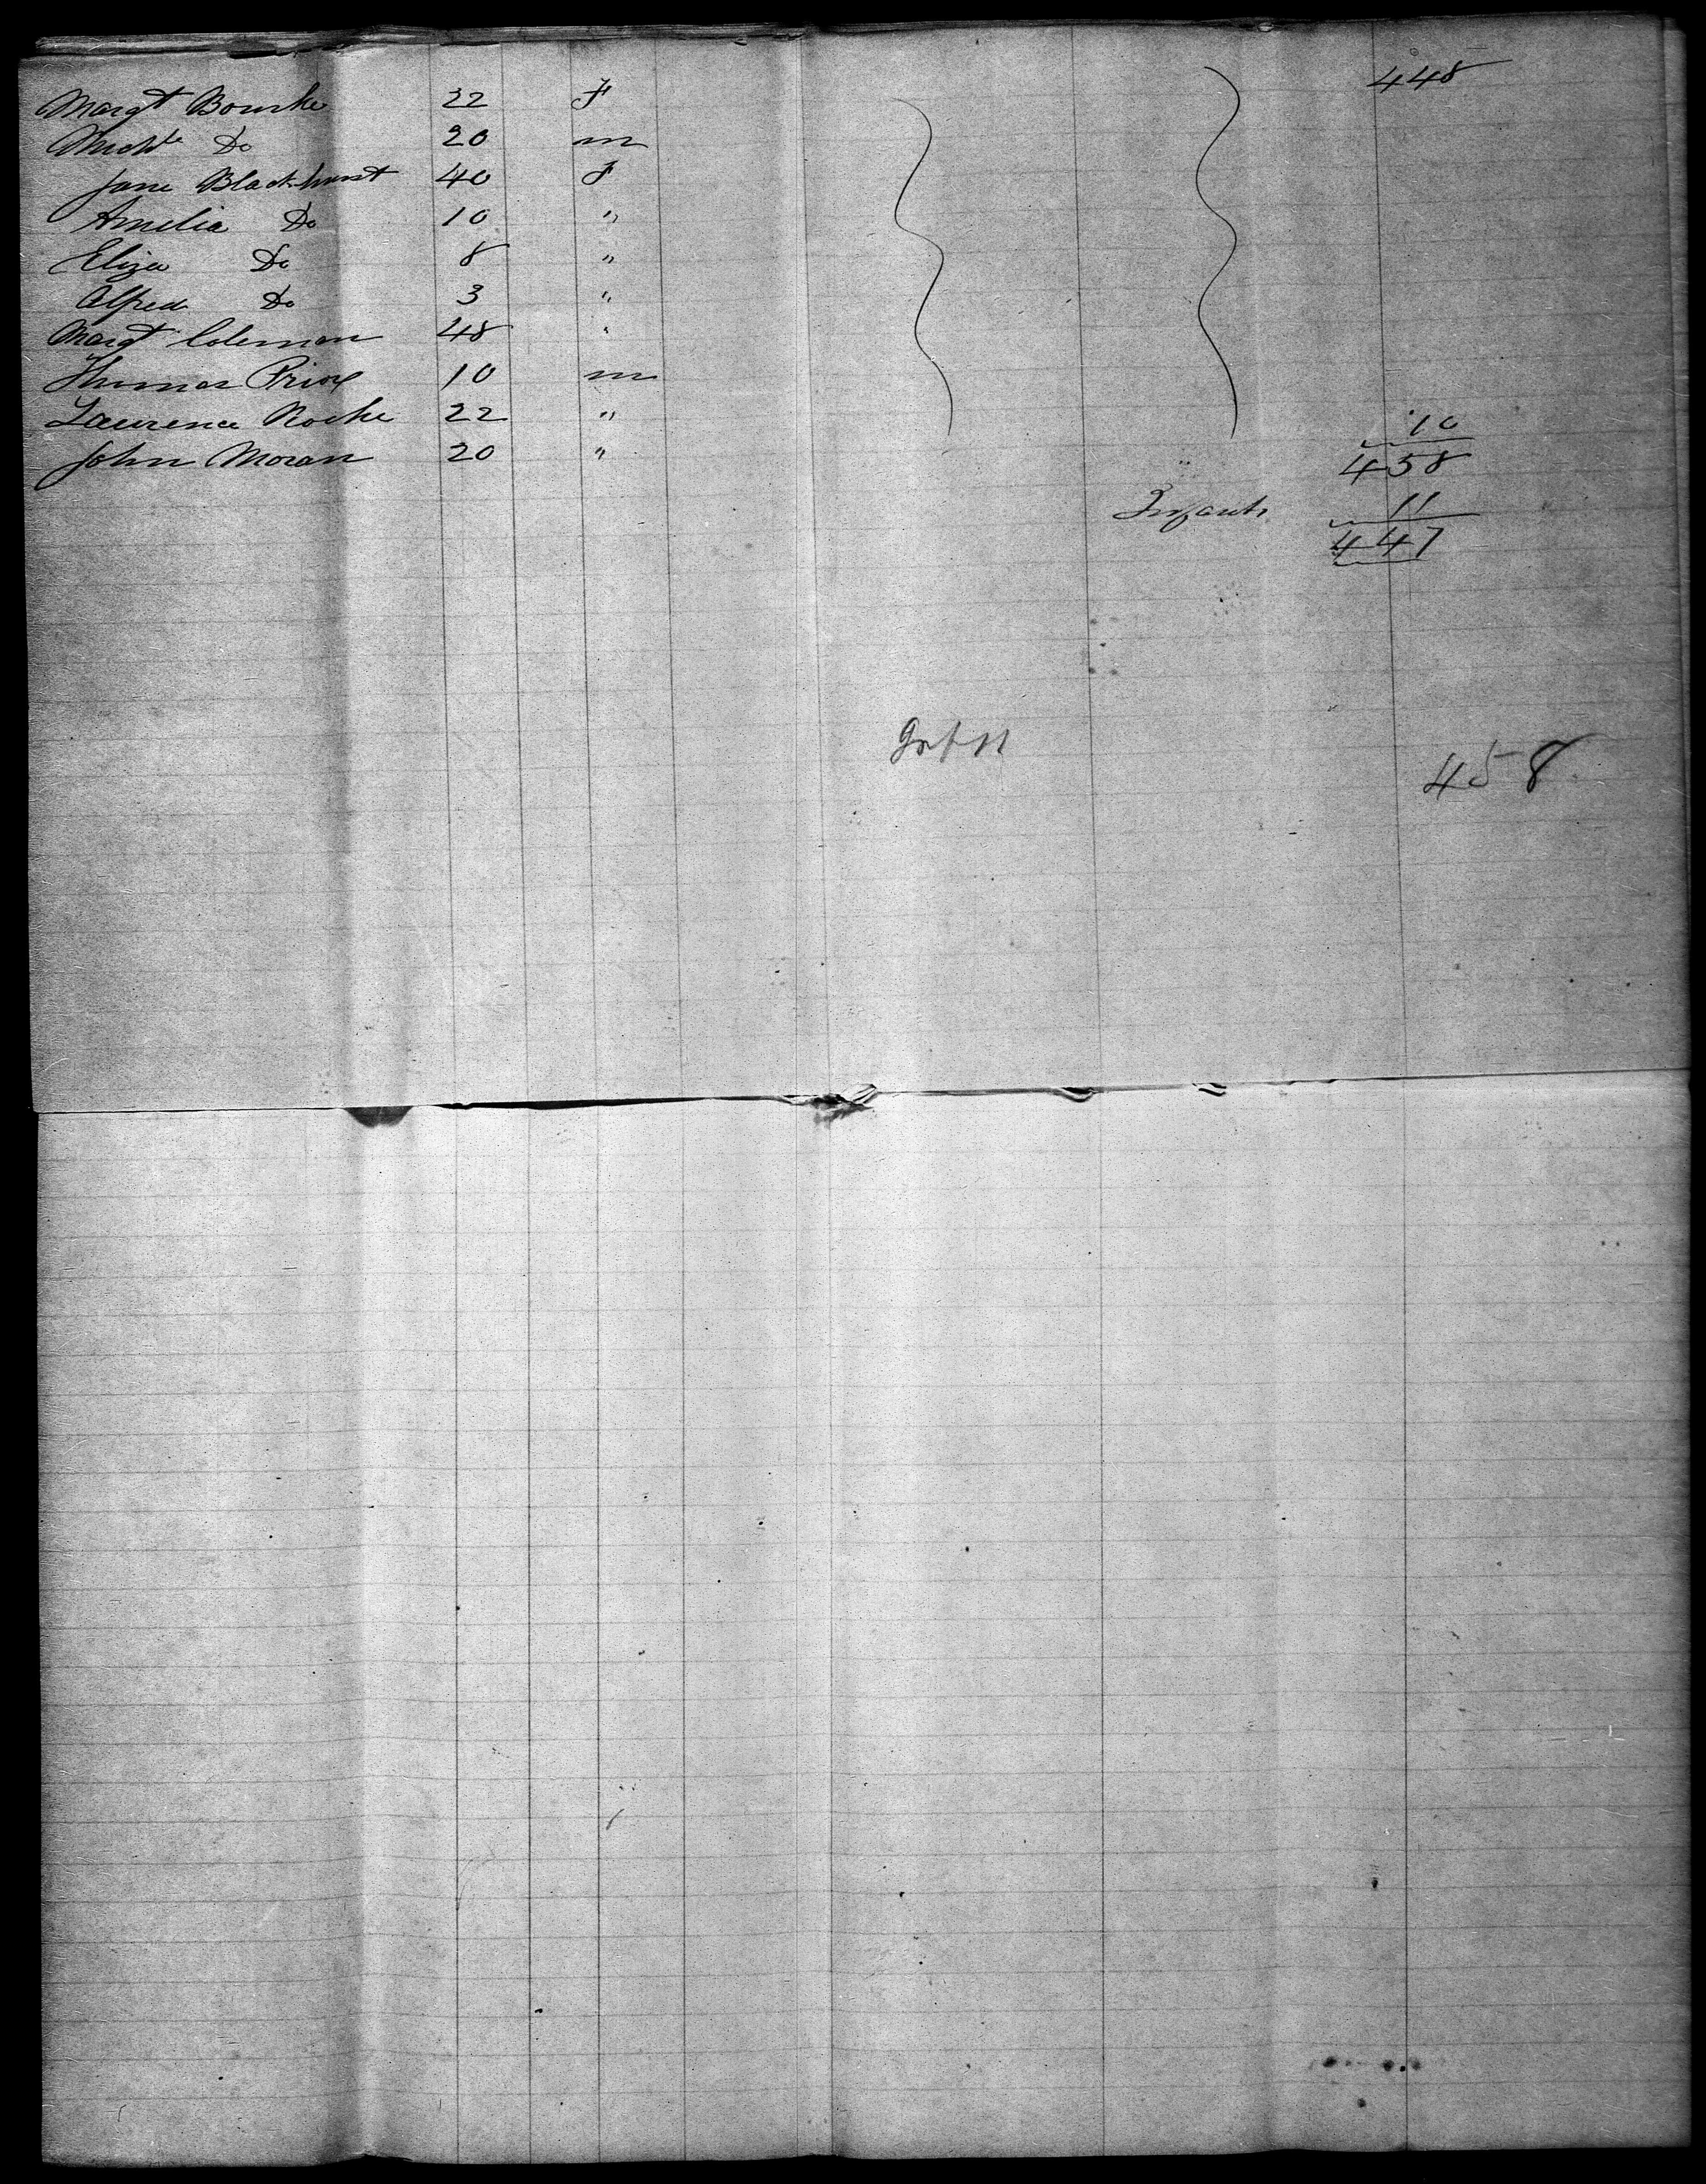 448
Margt Bourke 22 F
Michl Do 20 m
Jane Blackhurst 40 F
Amelia Do 10 "
Eliza Do 8 "
Alfred Do 3 "
Margt Coleman 48 "
Thomas Prior 10 m
Laurence Roche 22 " 10
John Moran 20 " 458
Infants 11
447
Inf 11
458